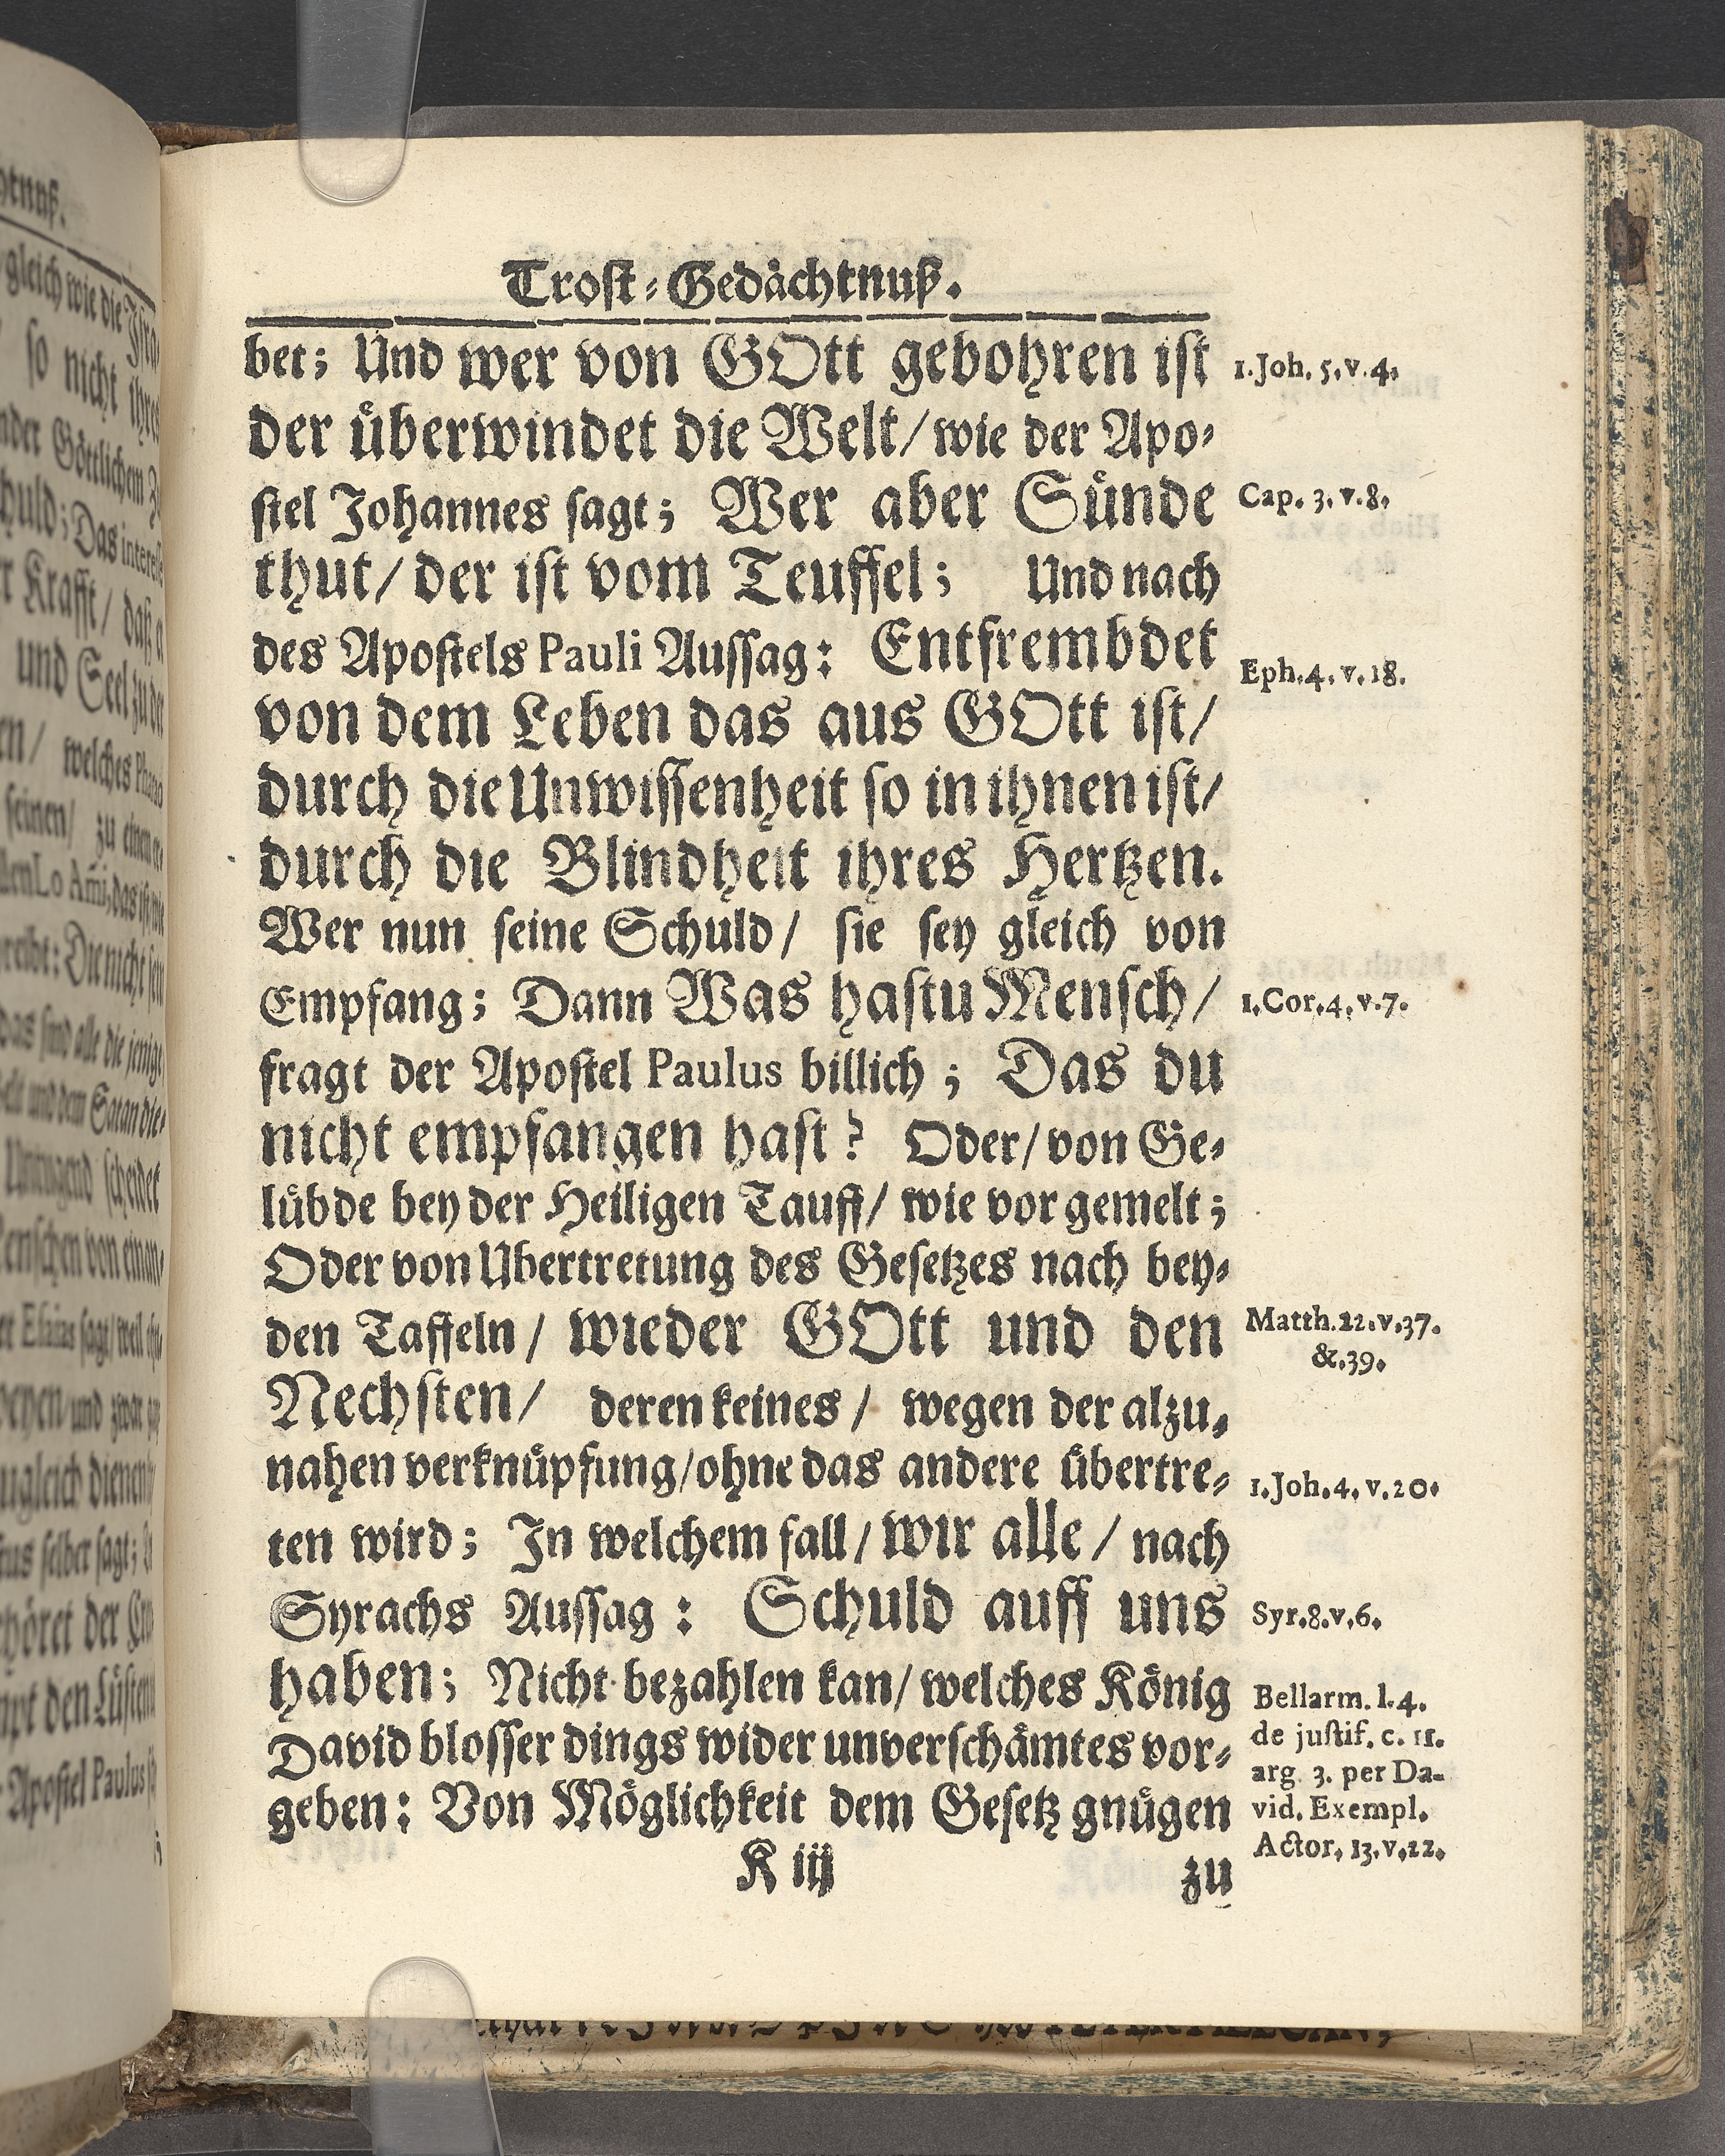 Trost-Gedächtnuß.
bet; Und wer von GOtt gebohren ist
1. Joh. 5. v. 4.
der überwindet die Welt/ wie der Apo-
stel Johannes sagt; Wer aber Sünde
Cap. 3. v. 8.
thut/ der ist vom Teuffel; Und nach
des Apostels Pauli Aussag: Entfrembdet
Eph. 4. v. 18.
von dem Leben das aus GOtt ist/
durch die Unwissenheit so in ihnen ist/
durch die Blindheit ihres Hertzen.
Wer nun seine Schuld/ sie sey gleich von
Empfang; Dann Was hastu Mensch/
1. Cor. 4. v. 7.
fragt der Apostel Paulus billich; Das du
nicht empfangen hast? Oder/ von Ge-
lübde bey der Heiligen Tauff/ wie vor gemelt;
Oder von Ubertretung des Gesetzes nach bey-
den Taffeln/ wieder GOtt und den
Matth. 22. v. 37.
&. 39.
Nechsten/ deren keines/ wegen der alzu-
nahen verknüpfung/ ohne das andere übertre-
1. Joh. 4. v. 20.
ten wird; In welchem fall/ wir alle/ nach
Syrachs Aussag: Schuld auff uns
Syr. 8. v. 6.
haben; Nicht bezahlen kan/ welches König
David blosser dings wider unverschämtes vor-
geben: Von Möglichkeit dem Gesetz gnügen
Bellarm. l. 4.
de justif. c. 11.
arg. 3. per Da-
vid. Exempl.
Actor. 13. v. 22.
K iij
zu